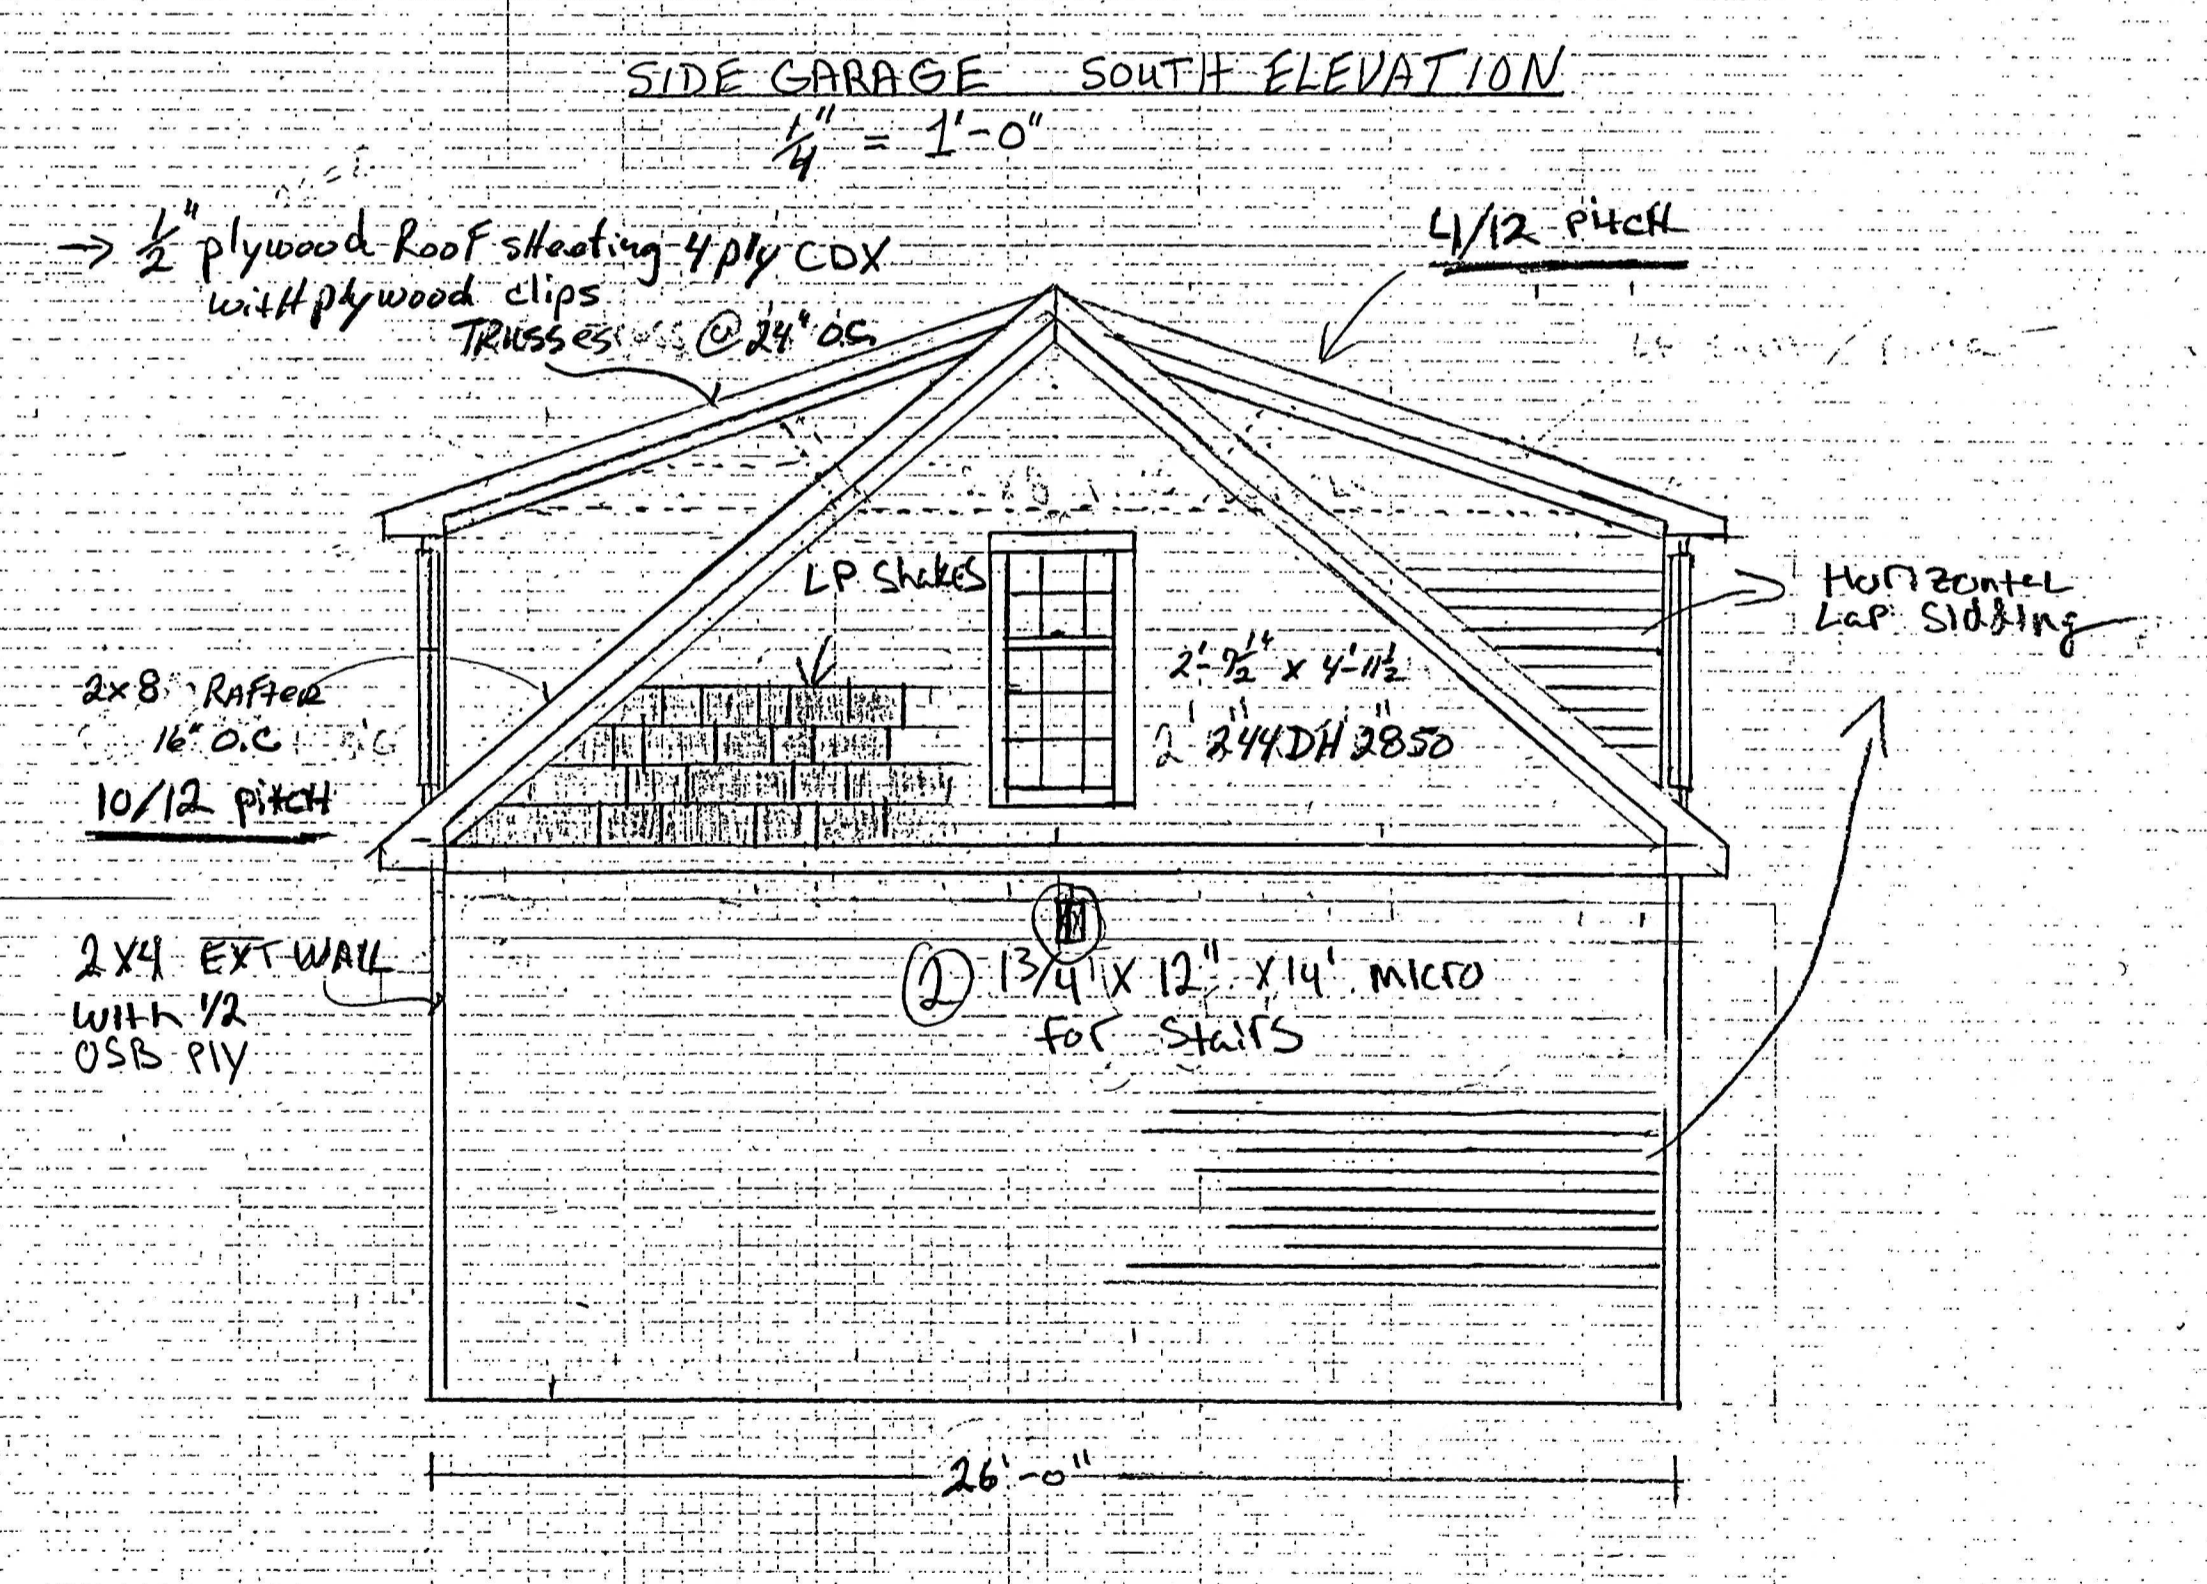 SIDE GARAGE SOUTH ELEVATION
1/4" = 1'-0"
4/12 PitcH
→ 1/2" plywood Roof sHeeting 4 ply CDX
witH plywood clips
TRUSSES @ 24" O.C.
LP Shakes
Horizontel
Lap Sidding
2x8 RAFTER
16" O.C
10/12 pitcH
2'-7 1/2" x 4'-11 1/2
244DH 2850
2X4 EXT WALL
With 1/2
OSB Ply
2 1 3/4" X 12" X 14' micro
for Stairs
26'-0"